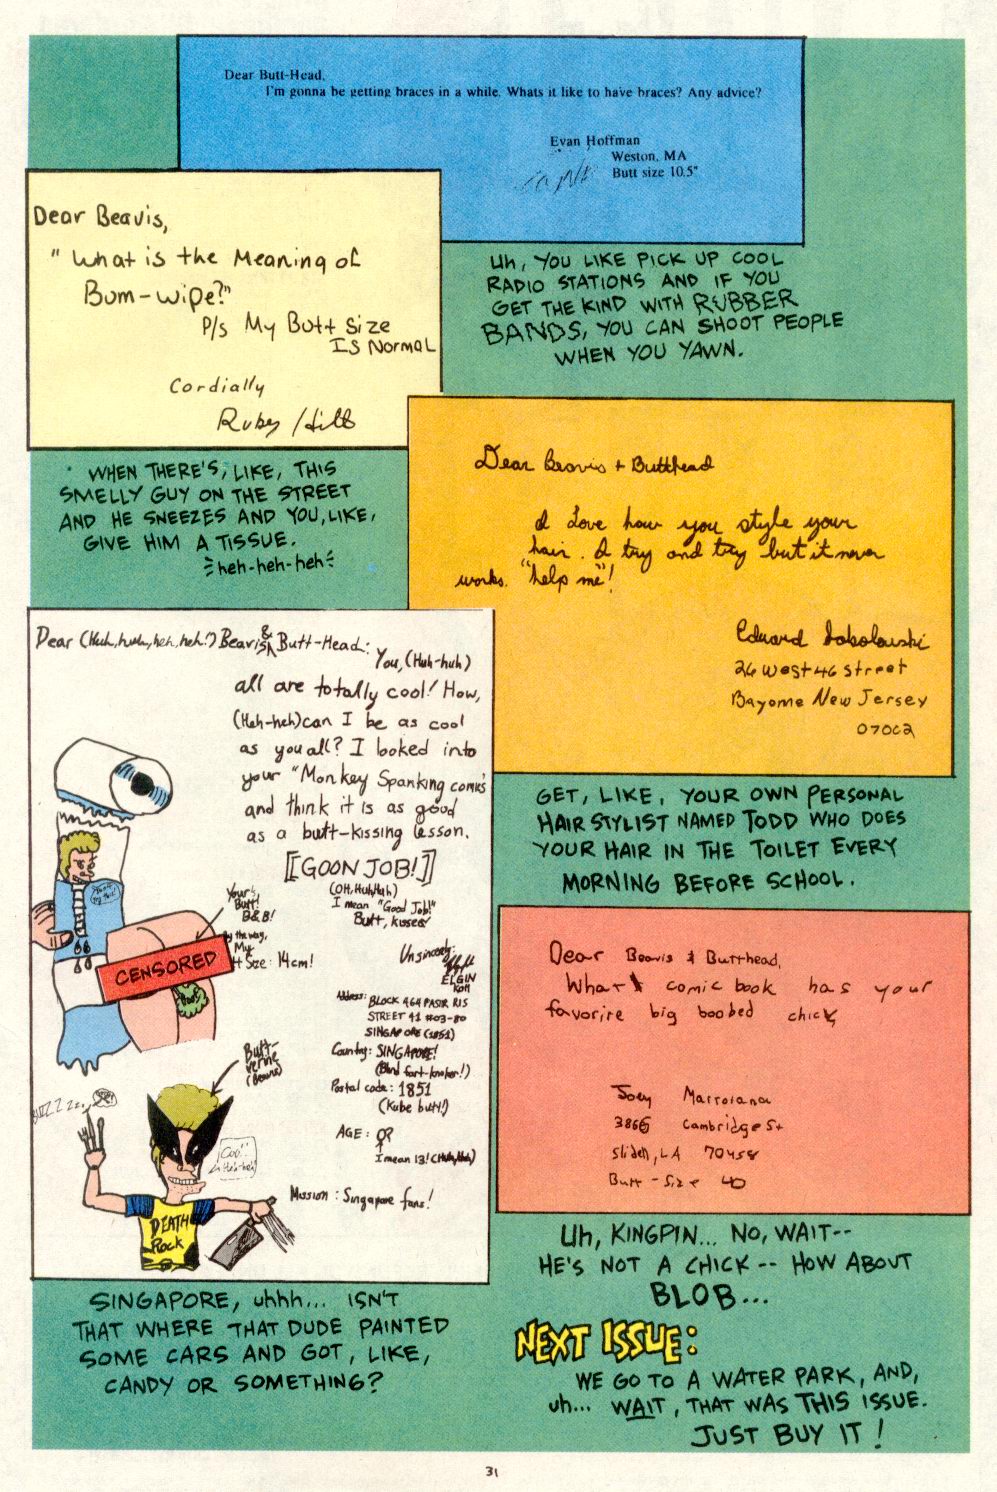 Dear Butt-Head,
I'm gonna be getting braces in a while. Whats it like to have braces? Any advice?
Evan Hoffman
Weston, MA
Butt size 10.5"
Uh, YOU LIKE PICK UP COOL
RADIO STATIONS AND IF YOU
GET THE KIND WITH RUBBER
BANDS, YOU CAN SHOOT PEOPLE
WHEN YOU YAWN.
Dear Beavis,
"What is the Meaning of
Bum-wipe?"
P/s My Butt Size
IS NORMAL
Cordially
Ruby Hill
WHEN THERE'S, LIKE, THIS
SMELLY GUY ON THE STREET
AND HE SNEEZES AND YOU, LIKE,
GIVE HIM A TISSUE.
heh-heh-heh
Dear Beavis + Butthead
I Love how you style your
hair. I try and try but it never
works. "help me"!
Eduard
26 West 46 street
Bayome New Jersey
07002
GET, LIKE, YOUR OWN PERSONAL
HAIR STYLIST NAMED TODD WHO DOES
YOUR HAIR IN THE TOILET EVERY
MORNING BEFORE SCHOOL.
Dear (Huh, huh, heh, heh!) Beavis & Butt-Head:
You, (Huh-huh)
all are totally cool! How,
(Heh-heh) can I be as cool
as you all? I looked into
your "Monkey Spanking comics
and think it is as good
as a butt-kissing lesson.
[[GOON JOB!]]
(OH, HuhHuh)
I mean "Good Job!"
Butt, kisses!
Your
Butt!
B&B!
By the way,
My
Size: 14cm!
CENSORED
Unsincerely:
ELGIN
KOH
Address: BLOCK 464 PASIR RIS
STREET 41 #03-80
SINGAPORE (1851)
Country: SINGAPORE!
(Blind fart-knocker!)
Postal code: 1851
(Kube butt!)
AGE: 0?
I mean 13! (Huh, Huh)
Mission: Singapore fans!
Butt-
verine
(Beavis)
Cool!
Heh-heh
DEATH
Rock
SINGAPORE, uhhh... ISN'T
THAT WHERE THAT DUDE PAINTED
SOME CARS AND GOT, LIKE,
CANDY OR SOMETHING?
Dear Beavis & Butthead,
What comic book has your
favorite big boobed chick
Joey Marroiana
3866 Cambridge St
Slidell, LA 70458
Butt-Size 40
Uh, KINGPIN... NO, WAIT--
HE'S NOT A CHICK -- HOW ABOUT
BLOB...
NEXT ISSUE:
WE GO TO A WATER PARK, AND,
uh... WAIT, THAT WAS THIS ISSUE.
JUST BUY IT!
31